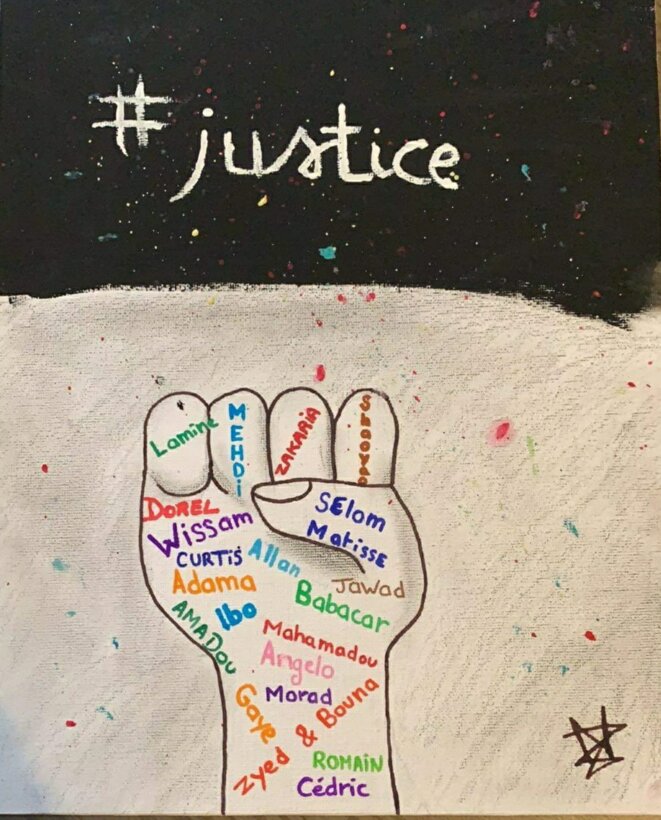 #justice
Lamine
MEHDi
ZAKARIA
DOREL
Wissam
SElom
Matisse
CURTiS
Allan
Adama
Jawad
Ibo
Babacar
AMADou
Mahamadou
Angelo
Gaye
Morad
Zyed & Bouna
ROMAiN
Cédric